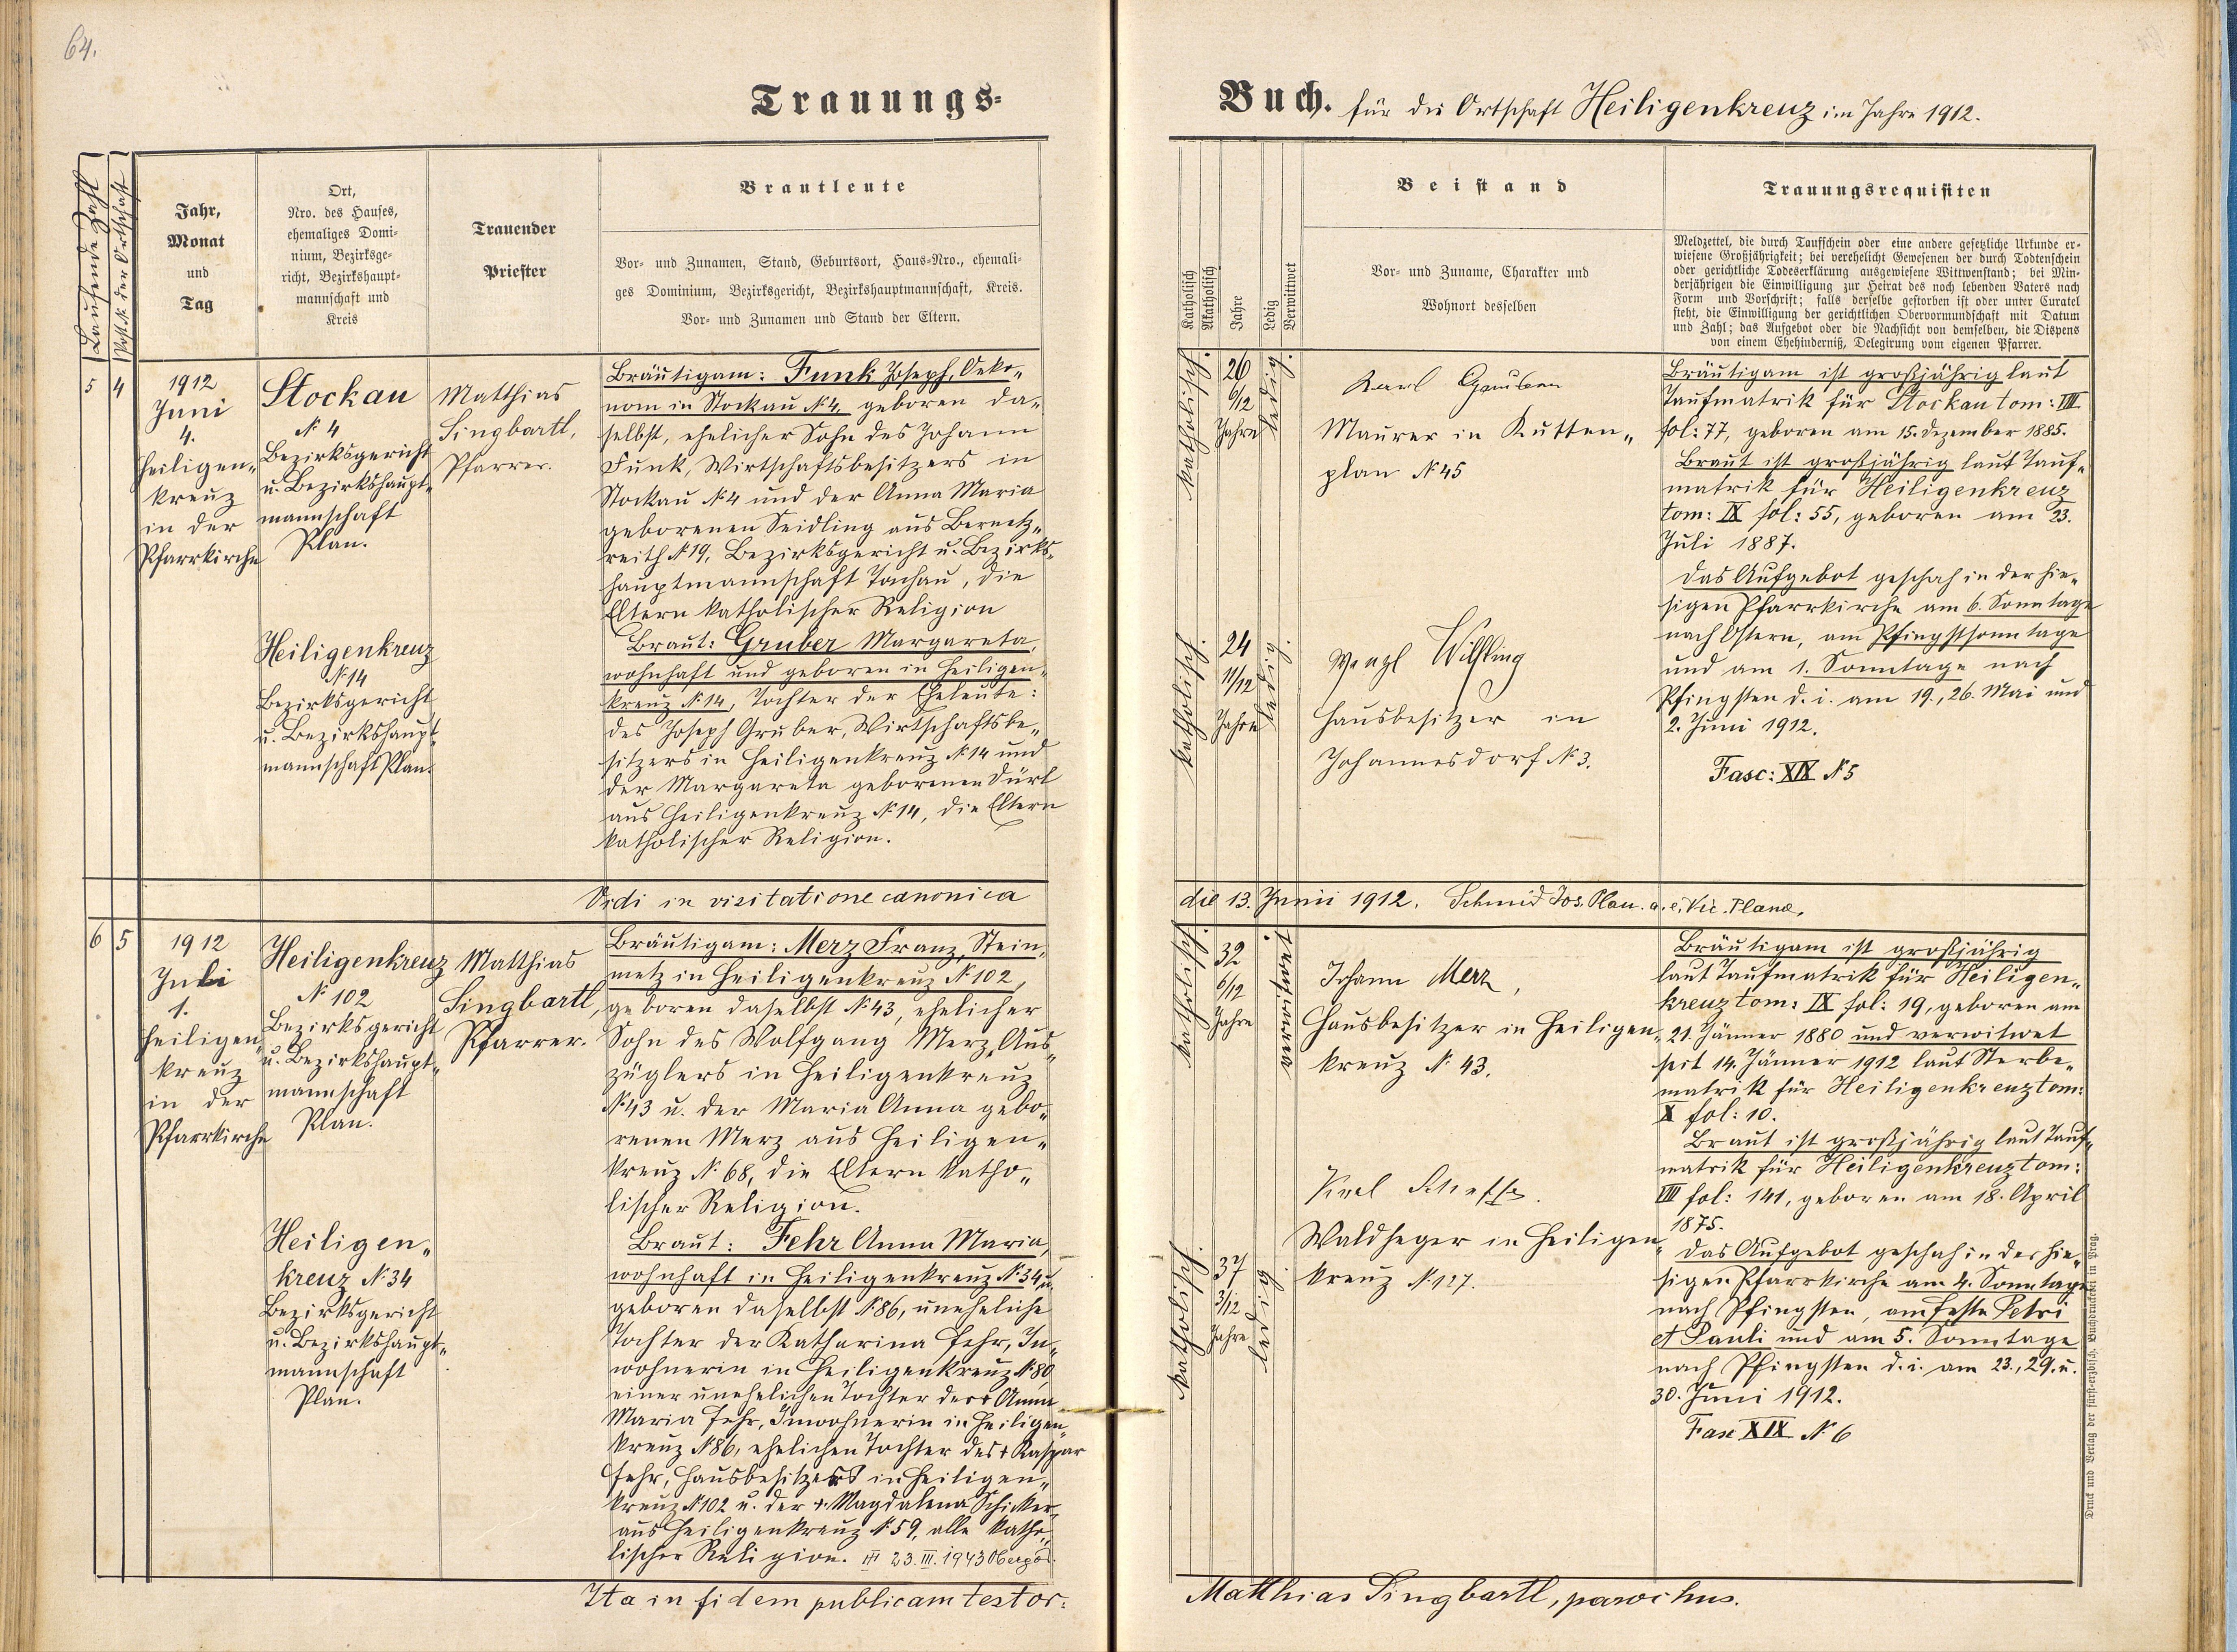 64.
Trauungs-
Laufende Zahl
Post. № der Ortschaft
Jahr,
Monat
und
Tag
Ort,
Nro. des Hauses,
ehemaliges Domi-
nium, Bezirksge-
richt, Bezirkshaupt-
mannschaft und
Kreis
Trauender
Priester
Brautleute
Vor- und Zunamen, Stand, Geburtsort, Haus-Nro., ehemali-
ges Dominium, Bezirksgericht, Bezirkshauptmannschaft, Kreis.
Vor- und Zunamen und Stand der Eltern.
5 4
1912
Juni
4.
Heiligen-
kreuz
in der
Pfarrkirche
Stockau
№ 4
Bezirksgericht
u. Bezirkshaupt-
mannschaft
Plan.
Heiligenkreuz
№ 14
Bezirksgericht
u. Bezirkshaupt-
mannschaft Plan.
Matthias
Singbartl,
Pfarrer.
Bräutigam: Funk Joseph, Oeko-
nom in Stockau № 4, geboren da-
selbst, ehelicher Sohn des Johann
Funk, Wirtschaftsbesitzers in
Stockau № 4 und der Anna Maria
geborenen Seidling aus Bernetz-
reith № 19, Bezirksgericht u. Bezirks-
hauptmannschaft Tachau, die
Eltern katholischer Religion
Braut: Gruber Margareta,
wohnhaft und geboren in Heiligen-
kreuz № 14, Tochter der Eheleute:
des Joseph Gruber, Wirtschaftsbe-
sitzers in Heiligenkreuz № 14 und
der Margareta geborenen Dürl
aus Heiligenkreuz № 14, die Eltern
katholischer Religion.
Vidi in visitatione canonica
6 5
1912
Juli
1.
Heiligen-
kreuz
in der
Pfarrkirche
Heiligenkreuz
№ 102
Bezirksgericht
u. Bezirkshaupt-
mannschaft
Plan.
Heiligen-
kreuz № 34
Bezirksgericht
u. Bezirkshaupt-
mannschaft
Plan.
Matthias
Singbartl,
Pfarrer.
Bräutigam: Merz Franz, Stein-
metz in Heiligenkreuz № 102,
geboren daselbst № 43, ehelicher
Sohn des Wolfgang Merz, Aus-
züglers in Heiligenkreuz
№ 43 u. der Maria Anna gebo-
renen Merz aus Heiligen-
kreuz № 68, die Eltern katho-
lischer Religion.
Braut: Fehr Anna Maria,
wohnhaft in Heiligenkreuz № 34 u.
geboren daselbst № 86, uneheliche
Tochter der Katharina Fehr, In-
wohnerin in Heiligenkreuz № 80
einer unehelichen Tochter der † Anna
Maria Fehr, Inwohnerin in Heiligen-
kreuz № 86, ehelichen Tochter des † Kaspar
Fehr, Hausbesitzers in Heiligen-
kreuz № 102 u. der † Magdalena Schicker
aus Heiligenkreuz № 59, alle katho-
lischer Religion. 23.III.1943
Ita in fidem publicam testor:
Buch. für die Ortschaft Heiligenkreuz im Jahre 1912.
Katholisch
Akatholisch
Jahre
Ledig
Verwittwet
Beistand
Vor- und Zuname, Charakter und
Wohnort desselben
Trauungsrequisiten
Meldzettel, die durch Taufschein oder eine andere gesetzliche Urkunde er-
wiesene Großjährigkeit; bei verehelicht Gewesenen der durch Todtenschein
oder gerichtliche Todeserklärung ausgewiesene Wittwenstand; bei Min-
derjährigen die Einwilligung zur Heirat des noch lebenden Vaters nach
Form und Vorschrift; falls derselbe gestorben ist oder unter Curatel
steht, die Einwilligung der gerichtlichen Obervormundschaft mit Datum
und Zahl; das Aufgebot oder die Nachsicht von demselben, die Dispens
von einem Ehehinderniß, Delegirung vom eigenen Pfarrer.
katholisch.
26
6/12
Jahre
ledig.
Karl
Maurer in Kutten-
plan № 45
katholisch.
24
11/12
Jahre
ledig.
Wenzl Wilfling
Hausbesitzer in
Johannesdorf № 3.
Bräutigam ist großjährig laut
Taufmatrik für Stockau tom: VIII
fol: 77, geboren am 15. Dezember 1885.
Braut ist großjährig laut Tauf-
matrik für Heiligenkreuz
tom: IX fol: 55, geboren am 23.
Juli 1887.
Das Aufgebot geschah in der hie-
sigen Pfarrkirche am 6. Sonntage
nach Ostern, am Pfingstsonntage
und am 1. Sonntage nach
Pfingsten d. i. am 19., 26. Mai und
2. Juni 1912.
Fasc: XIX № 5
die 13. Junii 1912. Schmid Jos. Plan. a. e. Vic. Plana.
katholisch.
32
6/12
Jahre
verwitwet.
Johann Merz,
Hausbesitzer in Heiligen-
kreuz № 43.
katholisch.
37
3/12
Jahre
ledig.
Waldheger in Heiligen-
kreuz № 127.
Bräutigam ist großjährig
laut Taufmatrik für Heiligen-
kreuz tom: IX fol: 19, geboren am
21. Jänner 1880 und verwitwet
seit 14. Jänner 1912 laut Sterbe-
matrik für Heiligenkreuz tom:
X fol: 10.
Braut ist großjährig laut Tauf-
matrik für Heiligenkreuz tom:
VIII fol: 141, geboren am 18. April
1875.
Das Aufgebot geschah in der hie-
sigen Pfarrkirche am 4. Sonntage
nach Pfingsten, am Feste Petri
et Pauli und am 5. Sonntage
nach Pfingsten d. i. am 23., 29. u.
30. Juni 1912.
Fasc XIX № 6
Druck und Verlag der fürst-erzbisch. Buchdruckerei in Prag.
Matthias Singbartl, parochus.